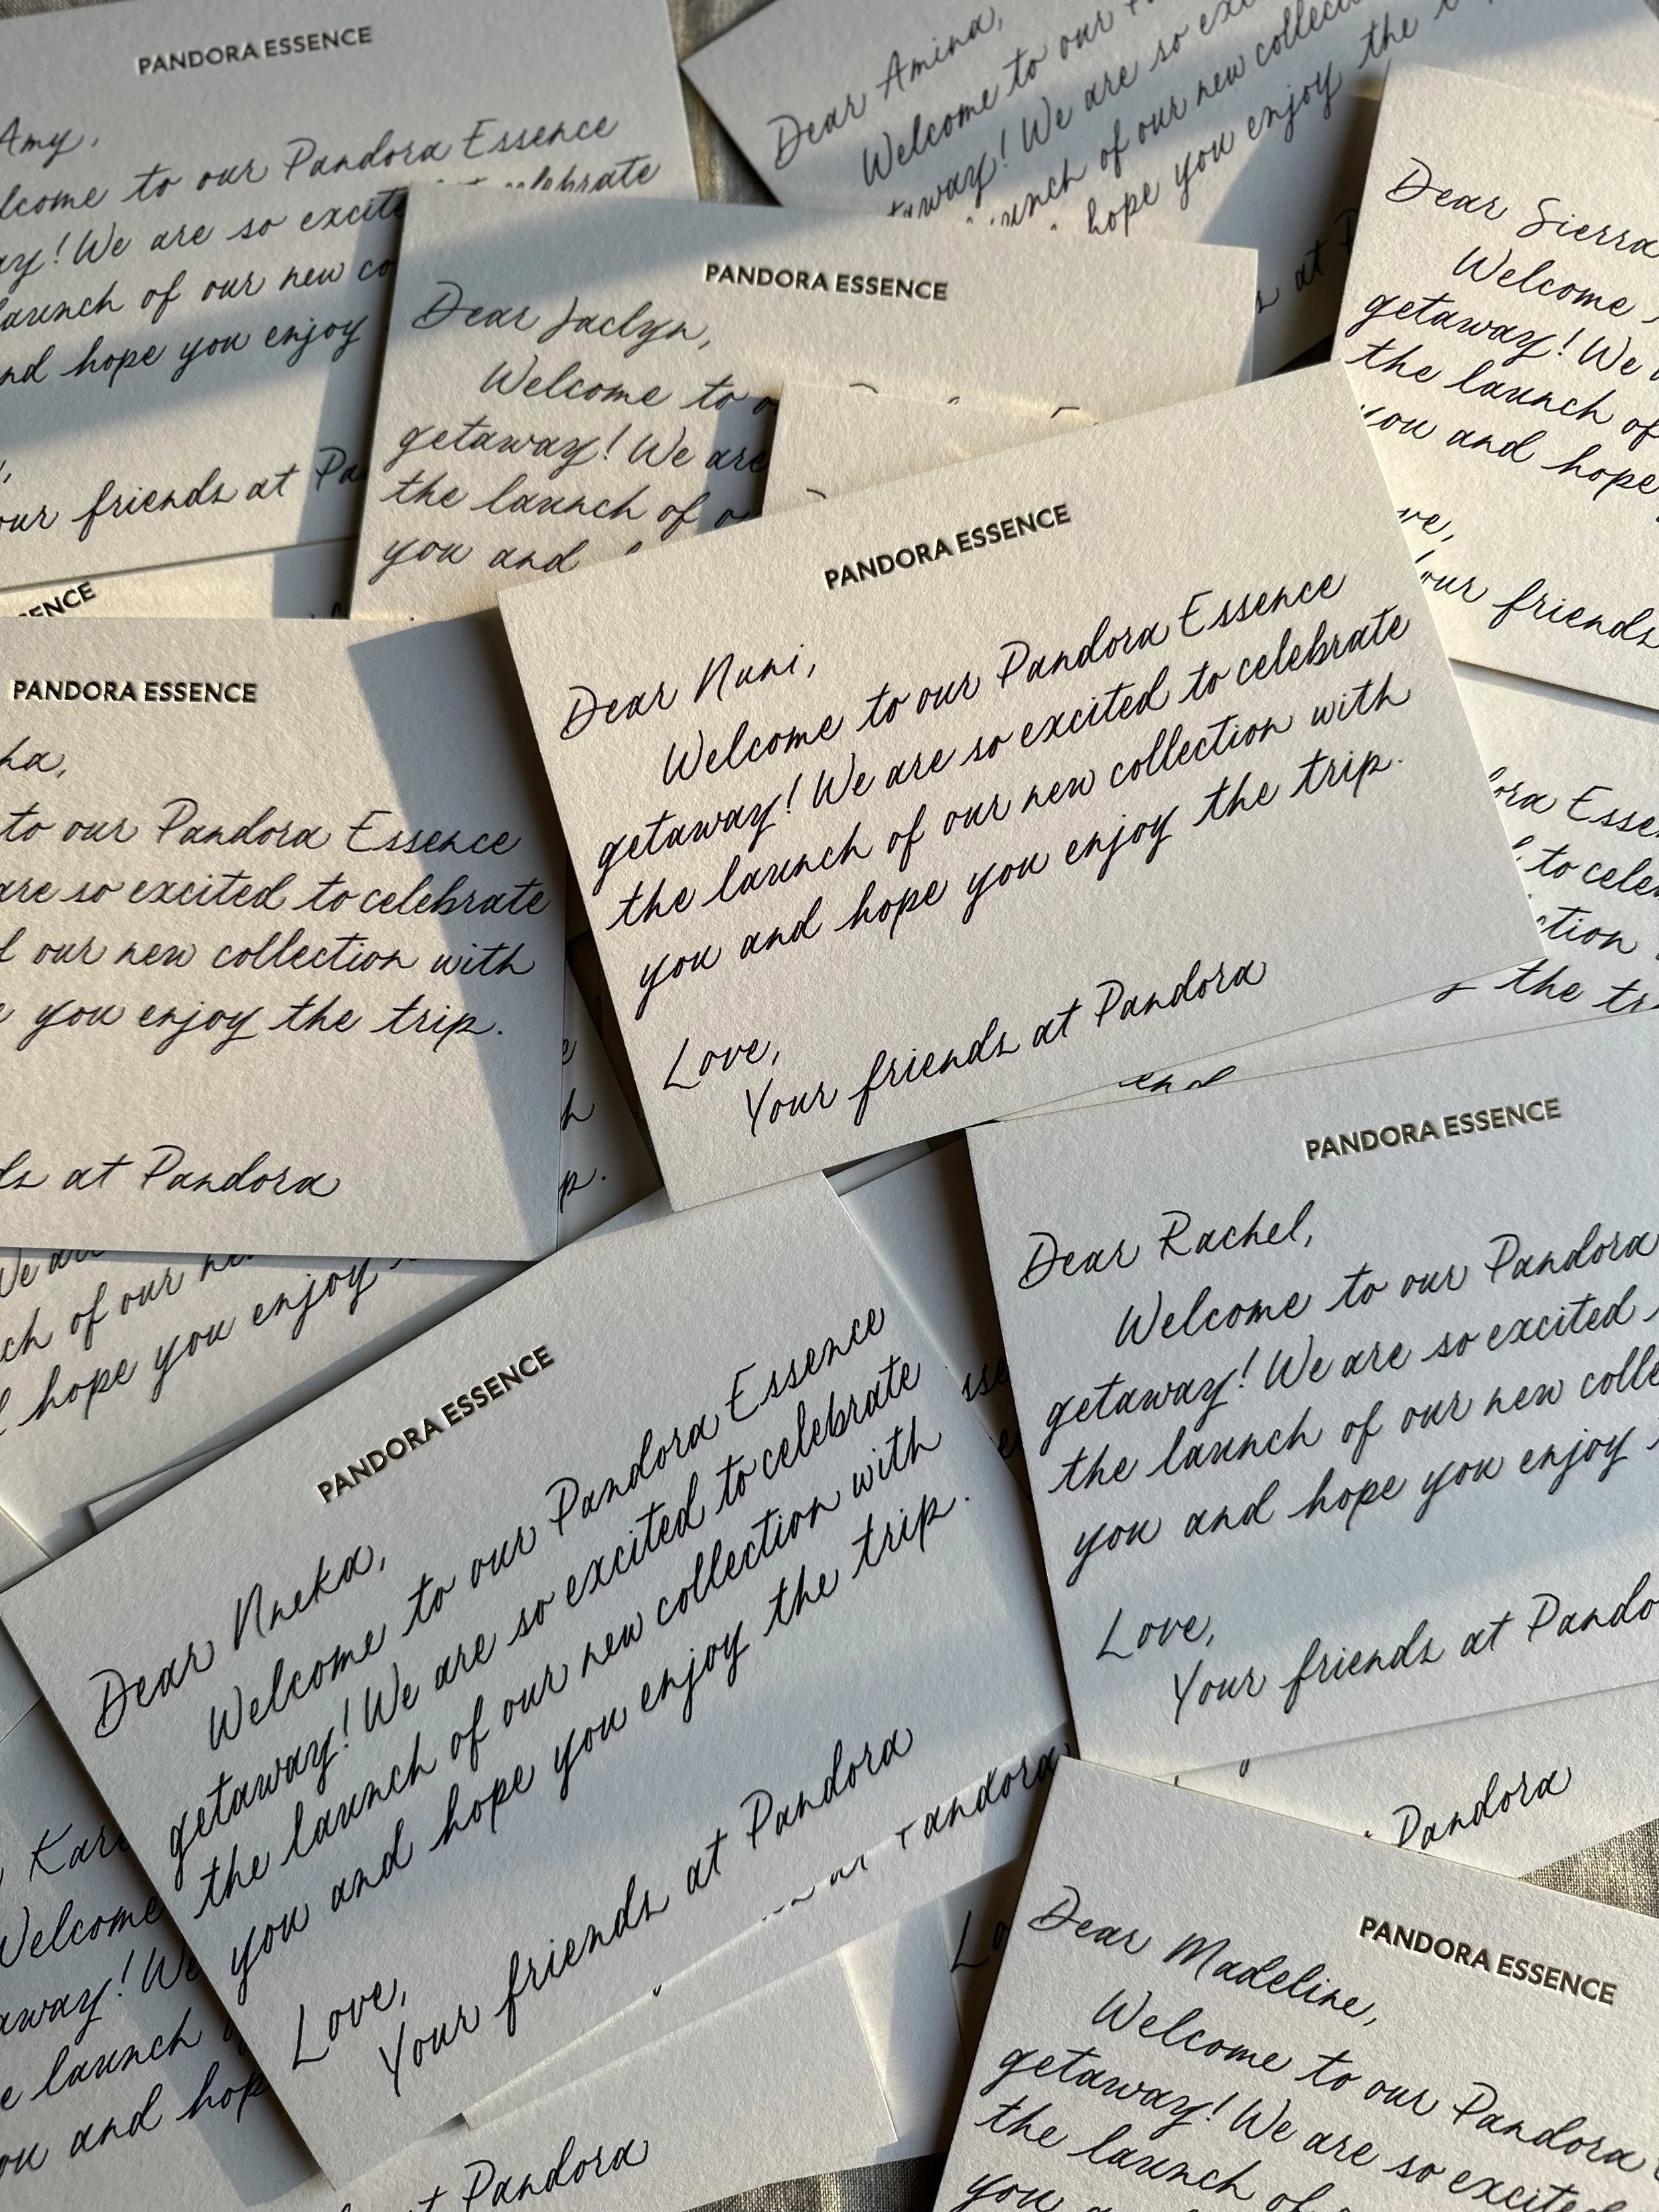 PANDORA ESSENCE
Amy,
to our Pandora Essence
celebrate
We are so
launch of our new
hope you enjoy
friends at
Dear Amina,
Welcome to our
We are so
of our new
hope you enjoy the
at
Dear Sierra
Welcome
getaway! We
the launch of
you and hope
friends
PANDORA ESSENCE
Dear Jaclyn,
Welcome to
getaway! We are
the launch of
you and
ESSENCE
PANDORA ESSENCE
to our Pandora Essence
are so excited to celebrate
our new collection with
you enjoy the trip.
at Pandora
PANDORA ESSENCE
Dear Nuni,
Welcome to our Pandora Essence
getaway! We are so excited to celebrate
the launch of our new collection with
you and hope you enjoy the trip.
Love,
Your friends at Pandora
to
the
of our
hope you enjoy
PANDORA ESSENCE
Dear Rachel,
Welcome to our Pandora
getaway! We are so excited
the launch of our new
you and hope you enjoy
Love,
Your friends at
Pandora
PANDORA ESSENCE
Dear Nneka,
Welcome to our Pandora Essence
getaway! We are so excited to celebrate
the launch of our new collection with
you and hope you enjoy the trip.
Love,
Your friends at Pandora
Welcome
launch
and
Pandora
PANDORA ESSENCE
Dear Madeline,
Welcome to our Pandora
getaway! We are so
the launch of
you